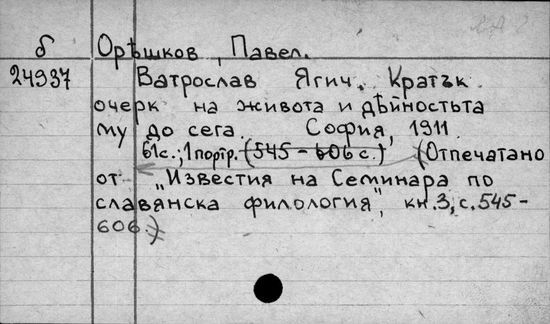 б Орѣшков, Павел.
24937 Ватрослав Ягич. Кратък
очерк на живота и дѣйностьта
му до сега. София, 1911.
61с.; 1 портр. (545 - 606 с.) (Отпечатано
от "Известия на Семинара по
славянска филология", кн. 3, с. 545-
606.)